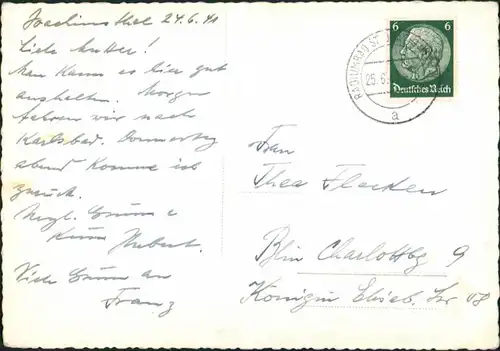 Joachimsthal 24.6.41
Liebe Mutter!
Man kann es hier gut
aushalten. Morgen
fahren wir nach
Karlsbad. Donnerstag
abend komme ich
zurück.
Herzl. Grüsse &
Küsse Hubert.
Viele Grüsse an
Franz
6 6
Deutsches Reich
RADIUMBAD ST.
25.6.
a
Frau
Thea Flecken
Bln Charlottbg 9
Königin Elisab. Str